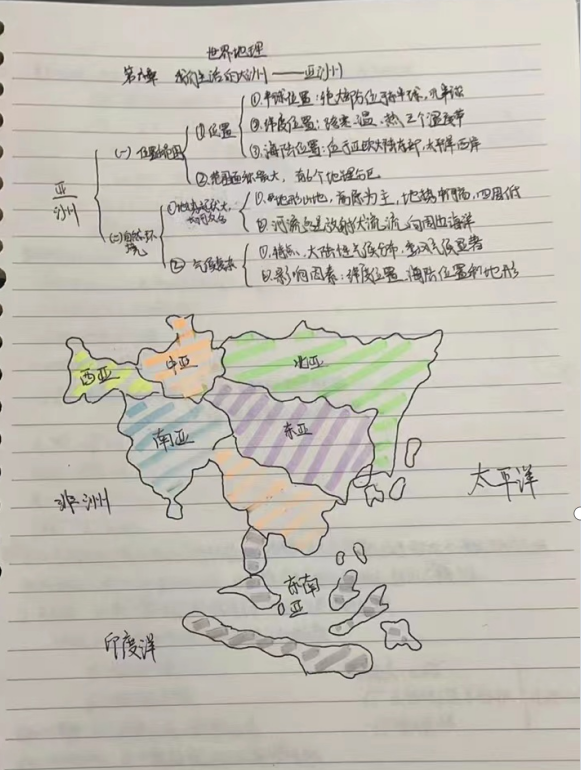 世界地理
第六章 我们生活的大洲——亚洲
亚洲
(一)位置范围
①位置
①.半球位置:绝大部分位于东半球,北半球
②.纬度位置:跨寒、温、热三个温度带
③.海陆位置:位于亚欧大陆东部,太平洋西岸
②.范围面积最大,有6个地理分区
(二)自然环境
①地势起伏大,
①.地形山地,高原为主,地势中高,四周低
②.河流呈放射状流,流向周边海洋
②气候复杂
①.特点:大陆性气候分布,季风气候显著
②.影响因素:纬度位置,海陆位置和地形
西亚
中亚
北亚
南亚
东亚
非洲
太平洋
东南亚
印度洋